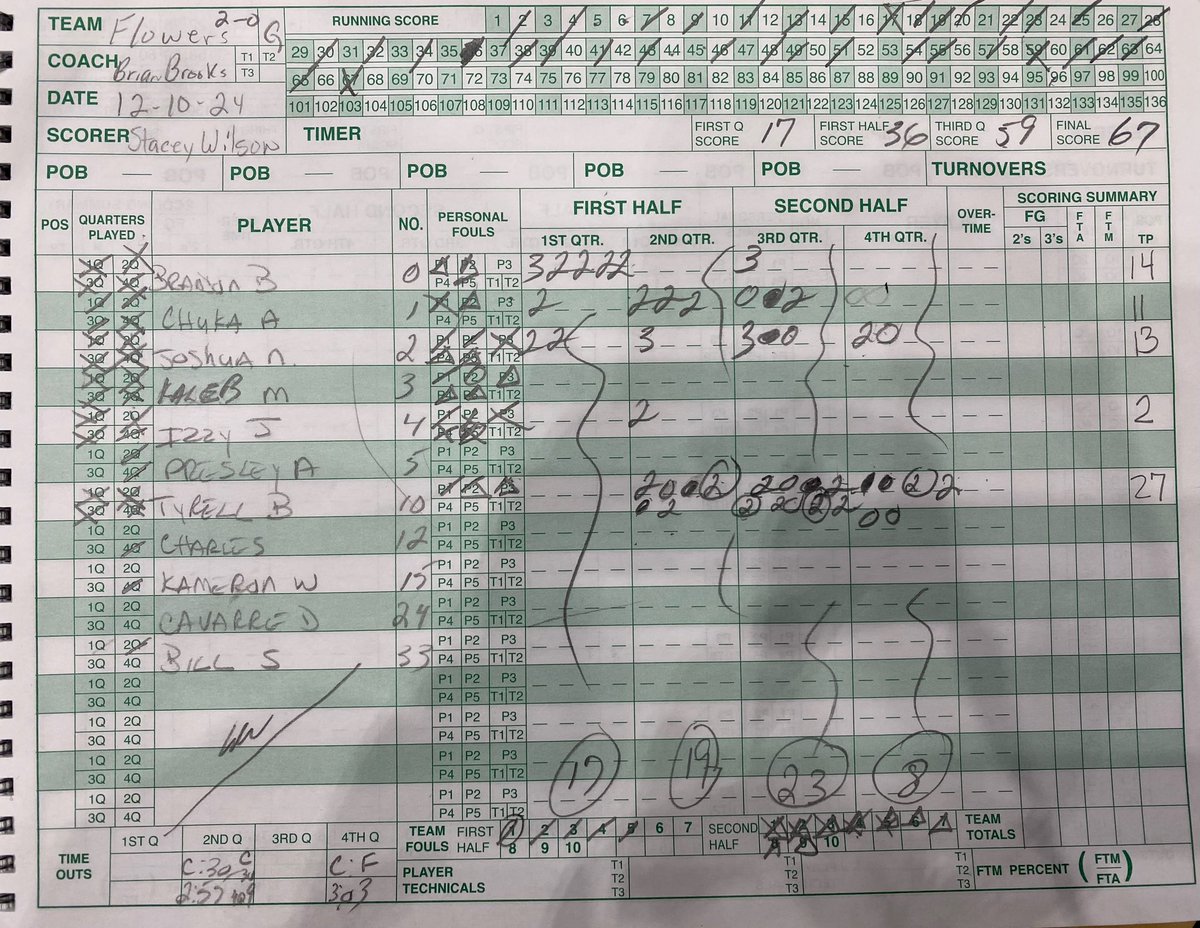 TEAM Flowers 2-0 G
RUNNING SCORE 1 2 3 4 5 6 7 8 9 10 11 12 13 14 15 16 17 18 19 20 21 22 23 24 25 26 27 28
29 30 31 32 33 34 35 36 37 38 39 40 41 42 43 44 45 46 47 48 49 50 51 52 53 54 55 56 57 58 59 60 61 62 63 64
COACH Brian Brooks T1 T2 T3
65 66 67 68 69 70 71 72 73 74 75 76 77 78 79 80 81 82 83 84 85 86 87 88 89 90 91 92 93 94 95 96 97 98 99 100
DATE 12-10-24
101 102 103 104 105 106 107 108 109 110 111 112 113 114 115 116 117 118 119 120 121 122 123 124 125 126 127 128 129 130 131 132 133 134 135 136
SCORER Stacey Wilson TIMER FIRST Q SCORE 17 FIRST HALF SCORE 36 THIRD Q SCORE 59 FINAL SCORE 67
POB — POB — POB — POB — POB — TURNOVERS
POS QUARTERS PLAYED PLAYER NO. PERSONAL FOULS FIRST HALF SECOND HALF OVER-TIME SCORING SUMMARY
1ST QTR. 2ND QTR. 3RD QTR. 4TH QTR. FG 2's 3's FTA FTM TP
1Q 2Q 3Q 4Q 0 P1 P2 P3 P4 P5 T1 T2 32222 3 14
1Q 2Q 3Q 4Q CHUKA A 1 P1 P2 P3 P4 P5 T1 T2 2 222 11
1Q 2Q 3Q 4Q JOSHUA N. 2 P1 P2 P3 P4 P5 T1 T2 22 3 20 13
1Q 2Q 3Q 4Q KALEB M 3 P1 P2 P3 P4 P5 T1 T2
1Q 2Q 3Q 4Q IZZY J 4 P1 P2 P3 P4 P5 T1 T2 2 2
1Q 2Q 3Q 4Q PRESLEY A 5 P1 P2 P3 P4 P5 T1 T2
1Q 2Q 3Q 4Q TYRELL B 10 P1 P2 P3 P4 P5 T1 T2 27
1Q 2Q 3Q 4Q CHARLES 12 P1 P2 P3 P4 P5 T1 T2
1Q 2Q 3Q 4Q KAMERON W 15 P1 P2 P3 P4 P5 T1 T2
1Q 2Q 3Q 4Q CAVARRE D 24 P1 P2 P3 P4 P5 T1 T2
1Q 2Q 3Q 4Q BILL S 33 P1 P2 P3 P4 P5 T1 T2
1Q 2Q 3Q 4Q P1 P2 P3 P4 P5 T1 T2
1Q 2Q 3Q 4Q P1 P2 P3 P4 P5 T1 T2
1Q 2Q 3Q 4Q P1 P2 P3 P4 P5 T1 T2 17 19 23 8
1Q 2Q 3Q 4Q P1 P2 P3 P4 P5 T1 T2
TIME OUTS 1ST Q 2ND Q 3RD Q 4TH Q
C:30 C:F
2:57 3:03
TEAM FOULS FIRST HALF 1 2 3 4 5 6 7 8 9 10 SECOND HALF 1 2 3 4 5 6 7 8 9 10 TEAM TOTALS
PLAYER TECHNICALS T1 T2 T3 T1 T2 T3 T1 T2 T3 FTM PERCENT (FTM FTA)